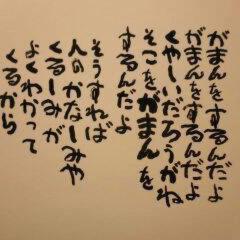 がまんをするんだよ
がまんをするんだよ
くやしいだろうがね
そこをがまんを
するんだよ
そうすれば
人のかなしみや
くるしみが
よくわかって
くるから